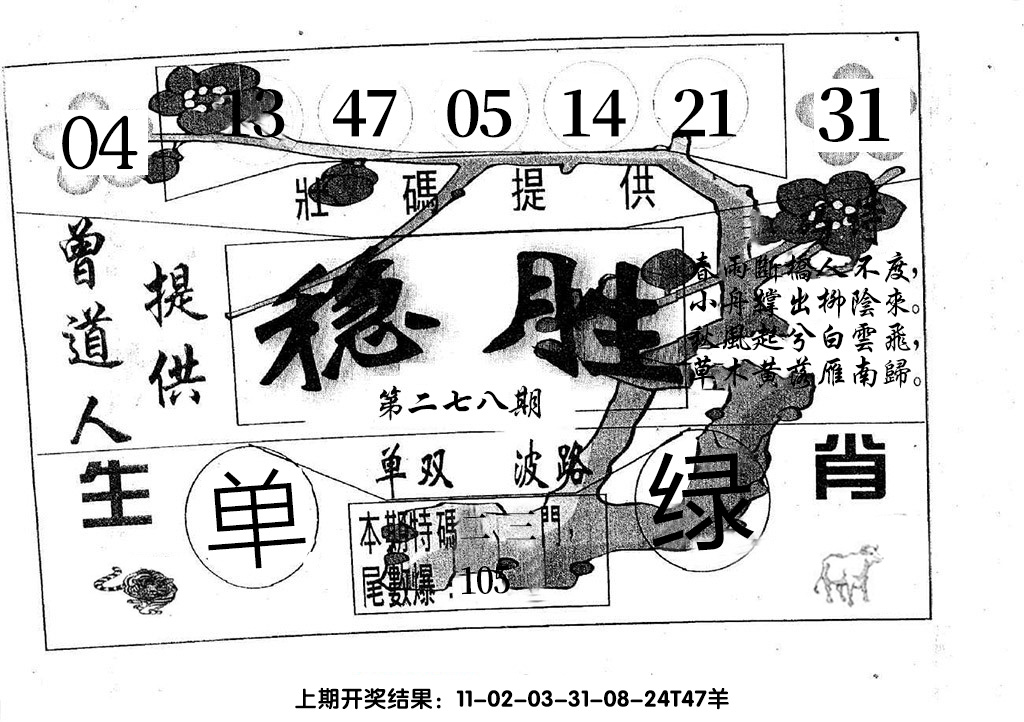 04 13 47 05 14 21 31
壯碼提供
曾道人
提供
稳胜
第二七八期
春雨斷橋人不度，
小舟蟶出柳陰來。
秋風起兮白雲飛，
草木黃落雁南歸。
单双 波路
生肖
单
绿
本期特碼二、三門，
尾數爆：105
上期开奖结果：11-02-03-31-08-24T47羊